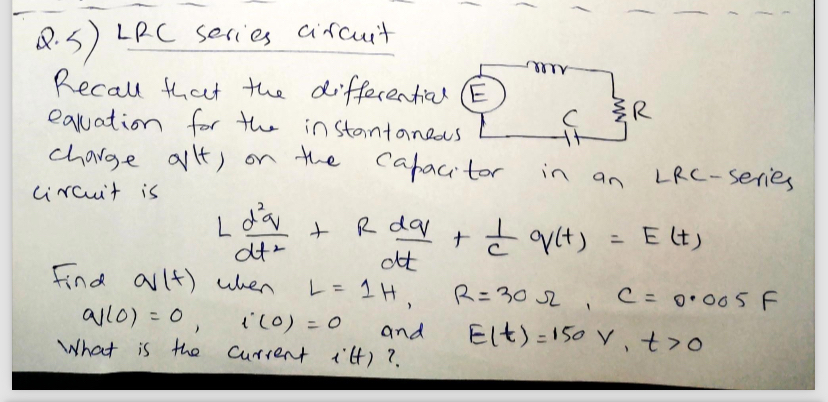 Q.5) LRC series circuit
Recall that the differential
equation for the instantaneous
charge q(t) on the capacitor in an LRC-series
circuit is
E
C
R
L d²q/dt² + R dq/dt + 1/C q(t) = E(t)
Find q(t) when L = 1H, R = 30 Ω, C = 0.005 F
q(0) = 0, i(0) = 0 and E(t) = 150 V, t>0
What is the current i(t)?.